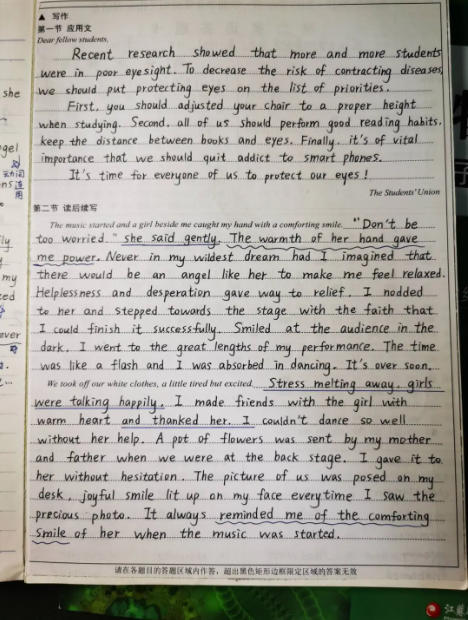 ▲ 写作
第一节 应用文
Dear fellow students,
Recent research showed that more and more students
were in poor eyesight. To decrease the risk of contracting diseases,
we should put protecting eyes on the list of priorities.
First, you should adjusted your chair to a proper height
when studying. Second, all of us should perform good reading habits,
keep the distance between books and eyes. Finally, it's of vital
importance that we should quit addict to smart phones.
It's time for everyone of us to protect our eyes!
The Students' Union
第二节 读后续写
The music started and a girl beside me caught my hand with a comforting smile. "Don't be
too worried." she said gently. The warmth of her hand gave
me power. Never in my wildest dream had I imagined that
there would be an angel like her to make me feel relaxed.
Helplessness and desperation gave way to relief. I nodded
to her and stepped towards the stage with the faith that
I could finish it successfully. Smiled at the audience in the
dark. I went to the great lengths of my performance. The time
was like a flash and I was absorbed in dancing. It's over soon.
We took off our white clothes, a little tired but excited. Stress melting away, girls
were talking happily. I made friends with the girl with
warm heart and thanked her. I couldn't dance so well
without her help. A pot of flowers was sent by my mother
and father when we were at the back stage. I gave it to
her without hesitation. The picture of us was posed on my
desk, joyful smile lit up on my face everytime I saw the
precious photo. It always reminded me of the comforting
smile of her when the music was started.
请在各题目的答题区域内作答，超出黑色矩形边框限定区域的答案无效
she
gel
动词
ns
适
用
ly
my
ted
ever